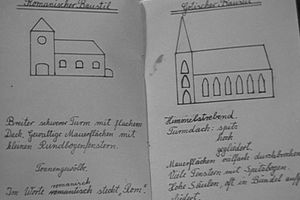 Romanischer Baustil
Breiter schwerer Turm mit flachem
Dach. Gewaltige Mauerflächen mit
kleinen Rundbogenfenstern.
Tonnengewölbe.
romanisch
Im Worte romantisch steckt „Rom"
Gotischer Baustil
Himmelstrebend
Turmdach: spitz
hoch
gegliedert.
Mauerflächen vielfach durchbrochen
Viele Fenstern mit Spitzbogen
Hohe Säulen, oft im Bündel aufge-
gliedert.